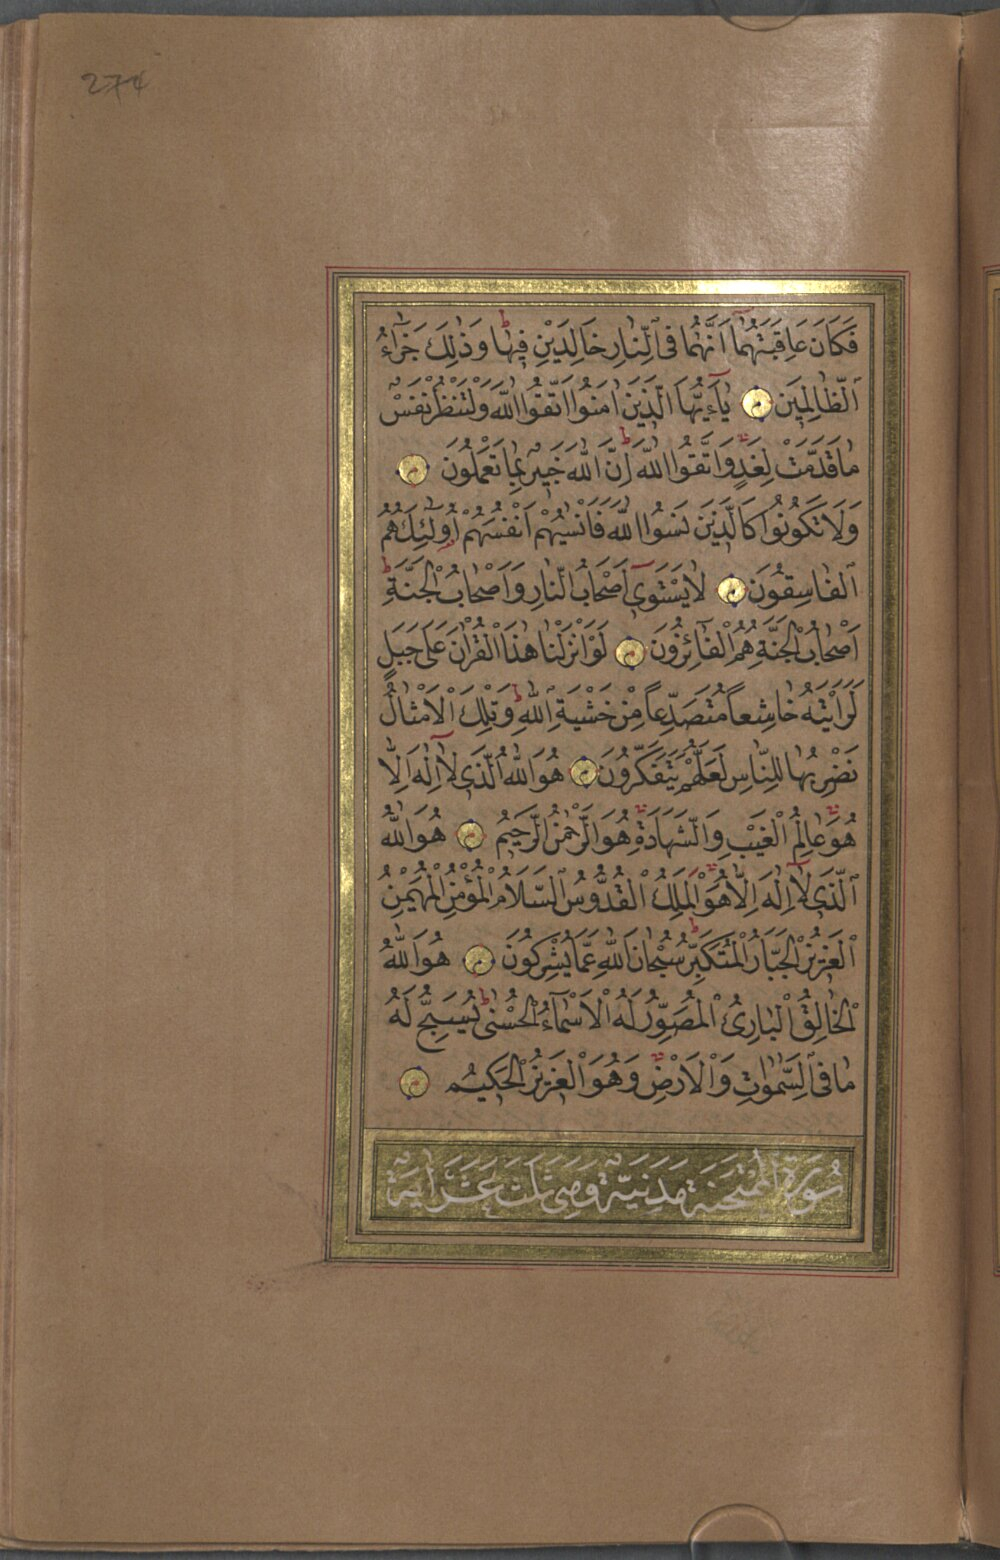 274
فَكَانَ عَاقِبَتَهُمَٓا اَنَّهُمَا فِى النَّارِ خَالِدَيْنِ فِيهَا ط وَذٰلِكَ جَزٰٓؤُ
الظَّالِمِينَ م يَٓا اَيُّهَا الَّذِينَ اٰمَنُوا اتَّقُوا اللّٰهَ وَلْتَنْظُرْ نَفْسٌ
مَا قَدَّمَتْ لِغَدٍ وَاتَّقُوا اللّٰهَ ط اِنَّ اللّٰهَ خَبِيرٌ بِمَا تَعْمَلُونَ م
وَلَا تَكُونُوا كَالَّذِينَ نَسُوا اللّٰهَ فَاَنْسٰيهُمْ اَنْفُسَهُمْ اُولٰٓئِكَ هُمُ
الْفَاسِقُونَ م لَا يَسْتَوِٓى اَصْحَابُ النَّارِ وَاَصْحَابُ الْجَنَّةِ ط
اَصْحَابُ الْجَنَّةِ هُمُ الْفَٓائِزُونَ م لَوْ اَنْزَلْنَا هٰذَا الْقُرْاٰنَ عَلٰى جَبَلٍ
لَرَاَيْتَهُ خَاشِعاً مُتَصَدِّعاً مِنْ خَشْيَةِ اللّٰهِ ط وَتِلْكَ الْاَمْثَالُ
نَضْرِبُهَا لِلنَّاسِ لَعَلَّهُمْ يَتَفَكَّرُونَ م هُوَ اللّٰهُ الَّذِى لَٓا اِلٰهَ اِلَّا
هُوَ عَالِمُ الْغَيْبِ وَالشَّهَادَةِ هُوَ الرَّحْمٰنُ الرَّحِيمُ م هُوَ اللّٰهُ
الَّذِى لَٓا اِلٰهَ اِلَّا هُوَ الْمَلِكُ الْقُدُّوسُ السَّلَامُ الْمُؤْمِنُ الْمُهَيْمِنُ
الْعَزِيزُ الْجَبَّارُ الْمُتَكَبِّرُ ط سُبْحَانَ اللّٰهِ عَمَّا يُشْرِكُونَ م هُوَ اللّٰهُ
الْخَالِقُ الْبَارِئُ الْمُصَوِّرُ لَهُ الْاَسْمَٓاءُ الْحُسْنٰى ط يُسَبِّحُ لَهُ
مَا فِى السَّمٰوَاتِ وَالْاَرْضِ وَهُوَ الْعَزِيزُ الْحَكِيمُ م
سُورَةُ الْمُمْتَحَنَةِ مَدَنِيَّةٌ وَهِىَ ثَلٰثَ عَشَرَ اٰيَةً